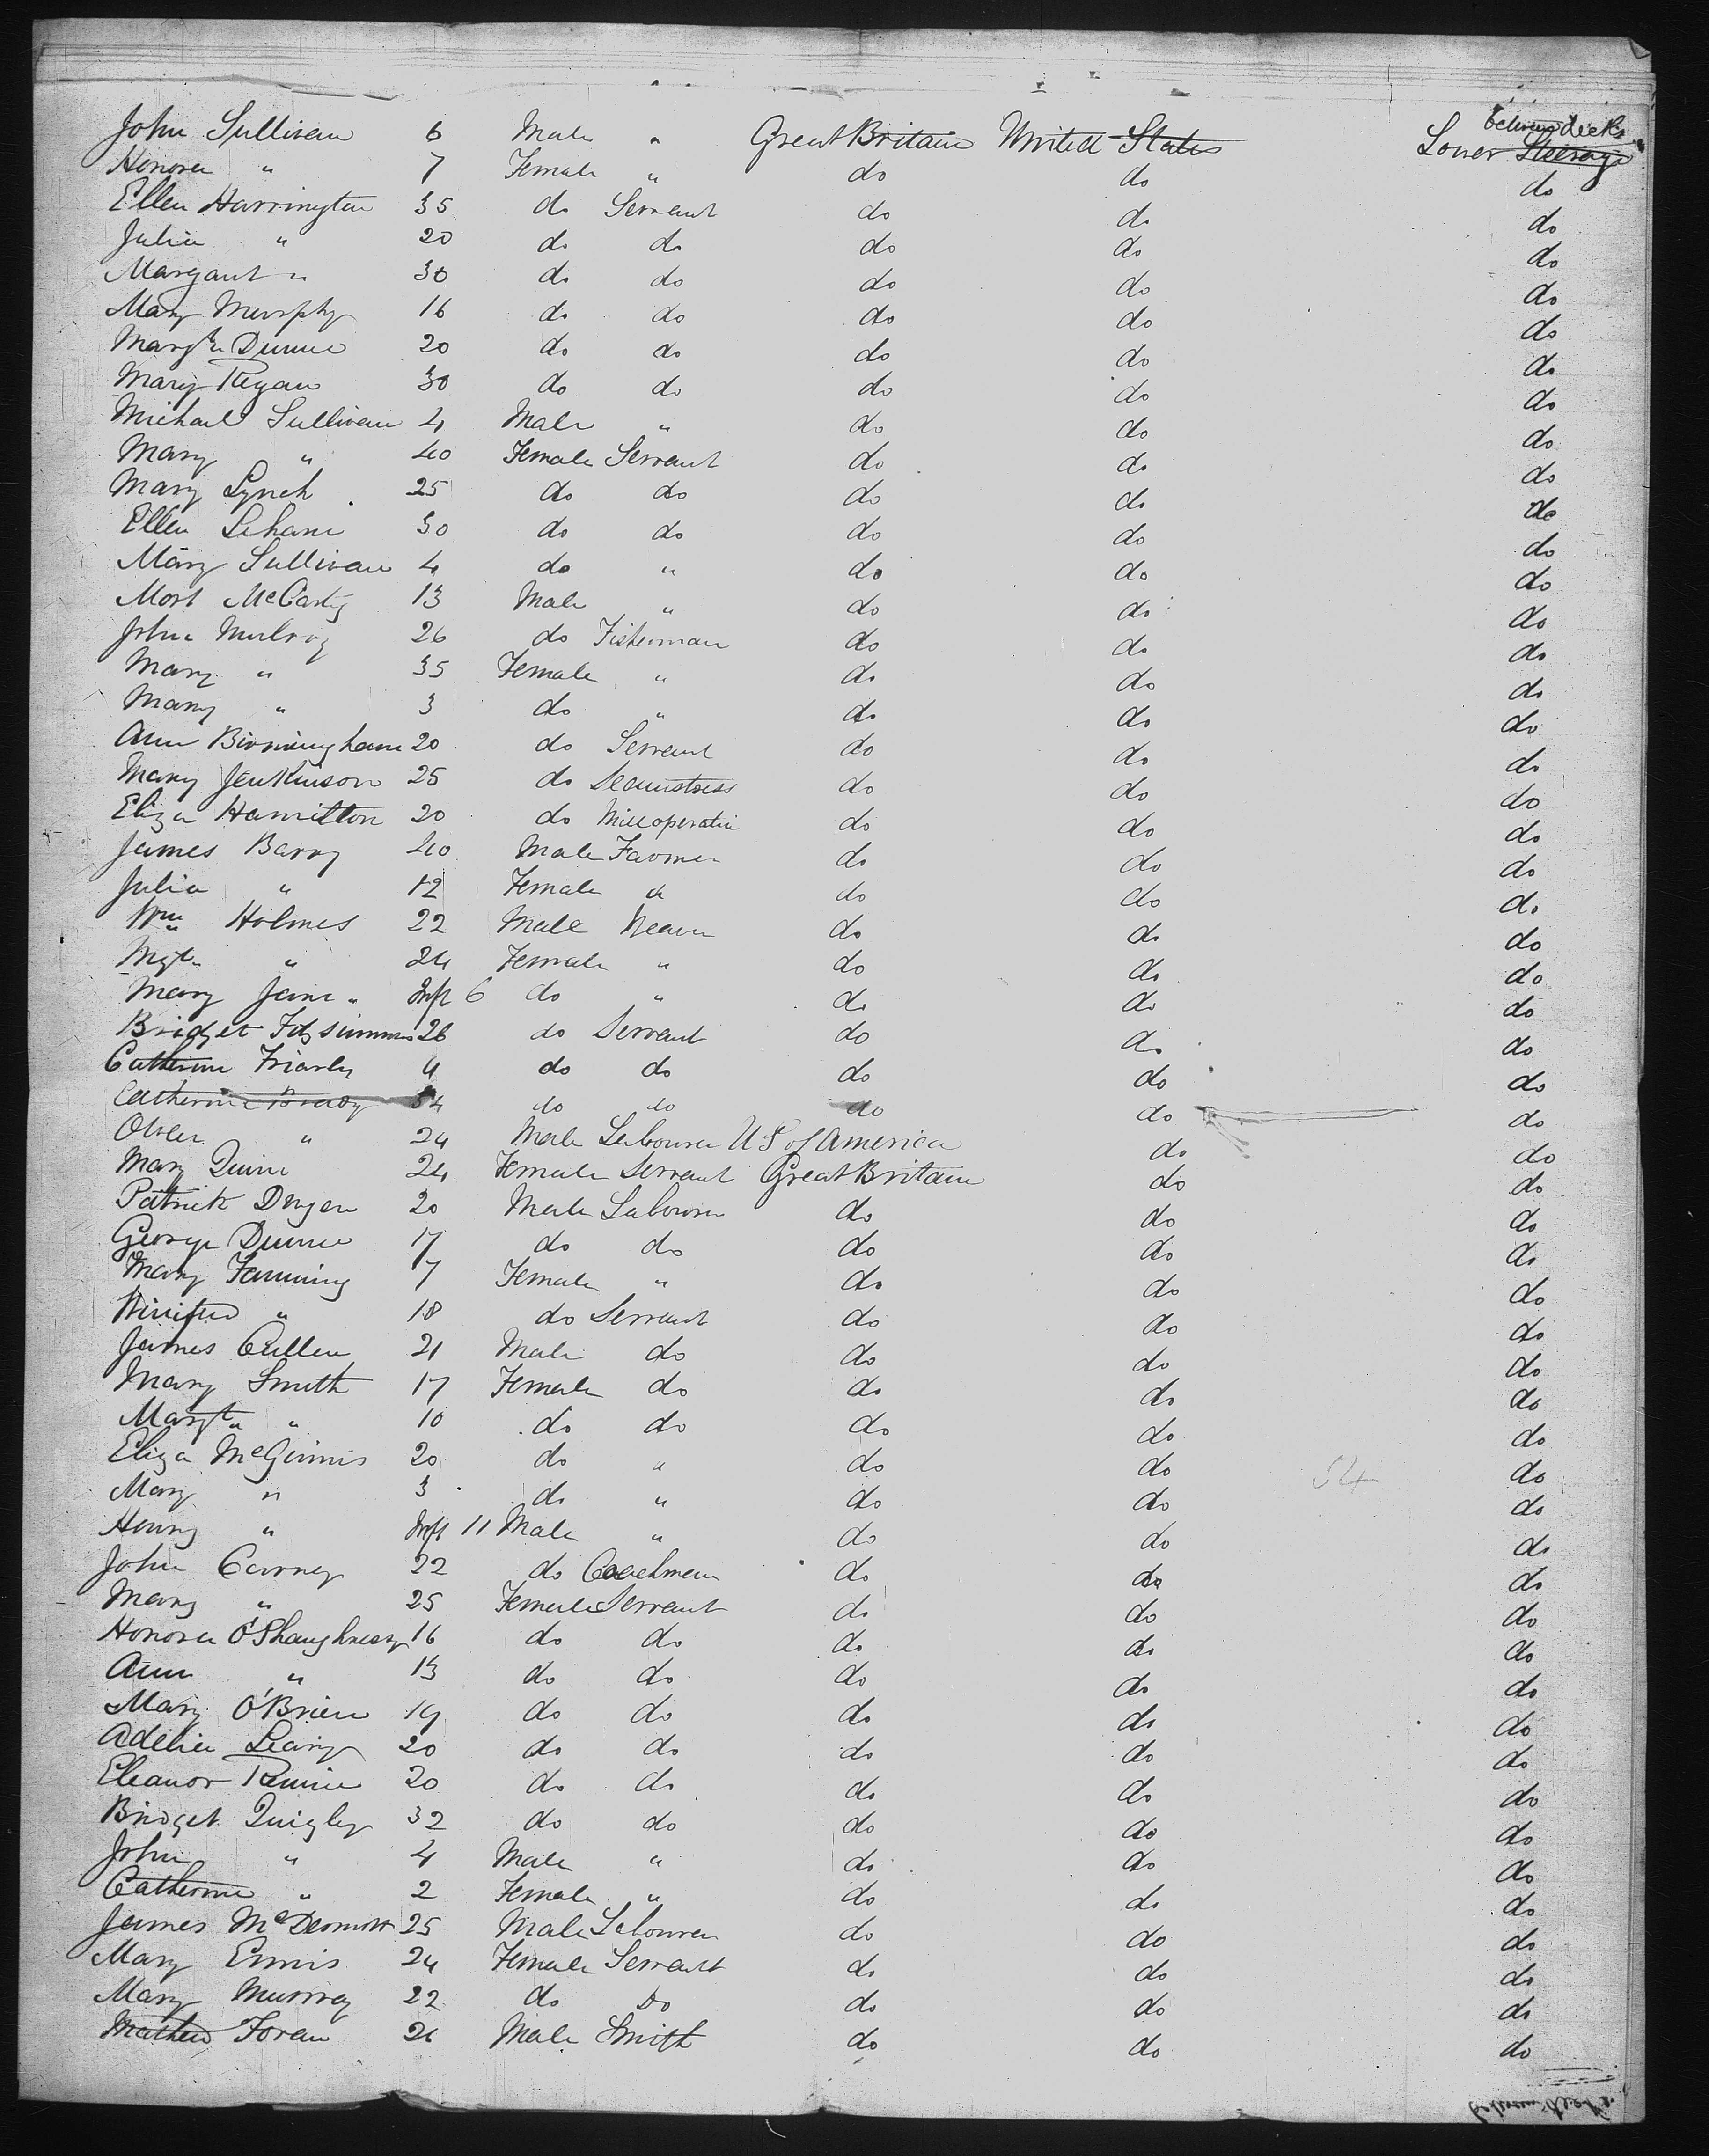 between decks
John Sullivan 6 Male " Great Britain United States Lower Steerage
Honora " 7 Female " do do do
Ellen Harrington 35 do Servant do do do
Julia " 20 do do do do do
Margaret " 30 do do do do do
Mary Murphy 16 do do do do do
Margt Dunne 20 do do do do do
Mary Regan 30 do do do do do
Michael Sullivan 4 Male " do do do
Mary " 40 Female Servant do do do
Mary Lynch 25 do do do do do
Ellen Lehane 30 do do do do do
Mary Sullivan 4 do " do do do
Mort McCarty 13 Male " do do do
John Mulroy 26 do Fisherman do do do
Mary " 35 Female " do do do
Mary " 3 do " do do do
Ann Birmingham 20 do Servant do do do
Mary Jenkinson 25 do Seamstress do do do
Eliza Hamilton 20 do Mill operative do do do
James Barry 40 Male Farmer do do do
Julia " 12 Female " do do do
Wm Holmes 22 Male do do do
Mgt " 24 Female " do do do
Mary Jane " Inft 6 do " do do do
Bridget Fitzsimmons 26 do Servant do do do
Catherine do do do do do
Catherine Brady 54 do do do do do
" 24 Male Labourer U S of America do do
Mary Quinn 24 Female Servant Great Britain do do
Patrick Dwyer 20 Male Labourer do do do
George Dunne 17 do do do do do
Mary Fanning 7 Female " do do do
Winifred " 18 do Servant do do do
James Cullen 21 Male do do do do
Mary Smith 17 Female do do do do
Margt " 10 do do do do do
Eliza McGinnis 20 do " do do do
54
Mary " 3 do " do do do
Henry " Inft 11 Male " do do do
John Carney 22 do Coachman do do do
Mary " 25 Female Servant do do do
Honora O'Shaughnessy 16 do do do do do
Ann " 13 do do do do do
Mary O'Brien 19 do do do do do
Adelia Leary 20 do do do do do
Eleanor 20 do do do do do
Bridget Quigley 32 do do do do do
John " 4 Male " do do do
Catherine " 2 Female " do do do
James McDermott 25 Male Labourer do do do
Mary Ennis 24 Female Servant do do do
Mary Murray 22 do Do do do do
Mathew Foran 26 Male Smith do do do
between decks